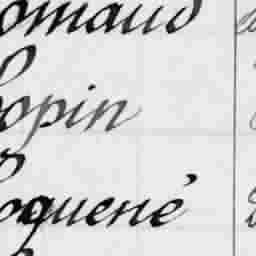 omaud
opin
oquené